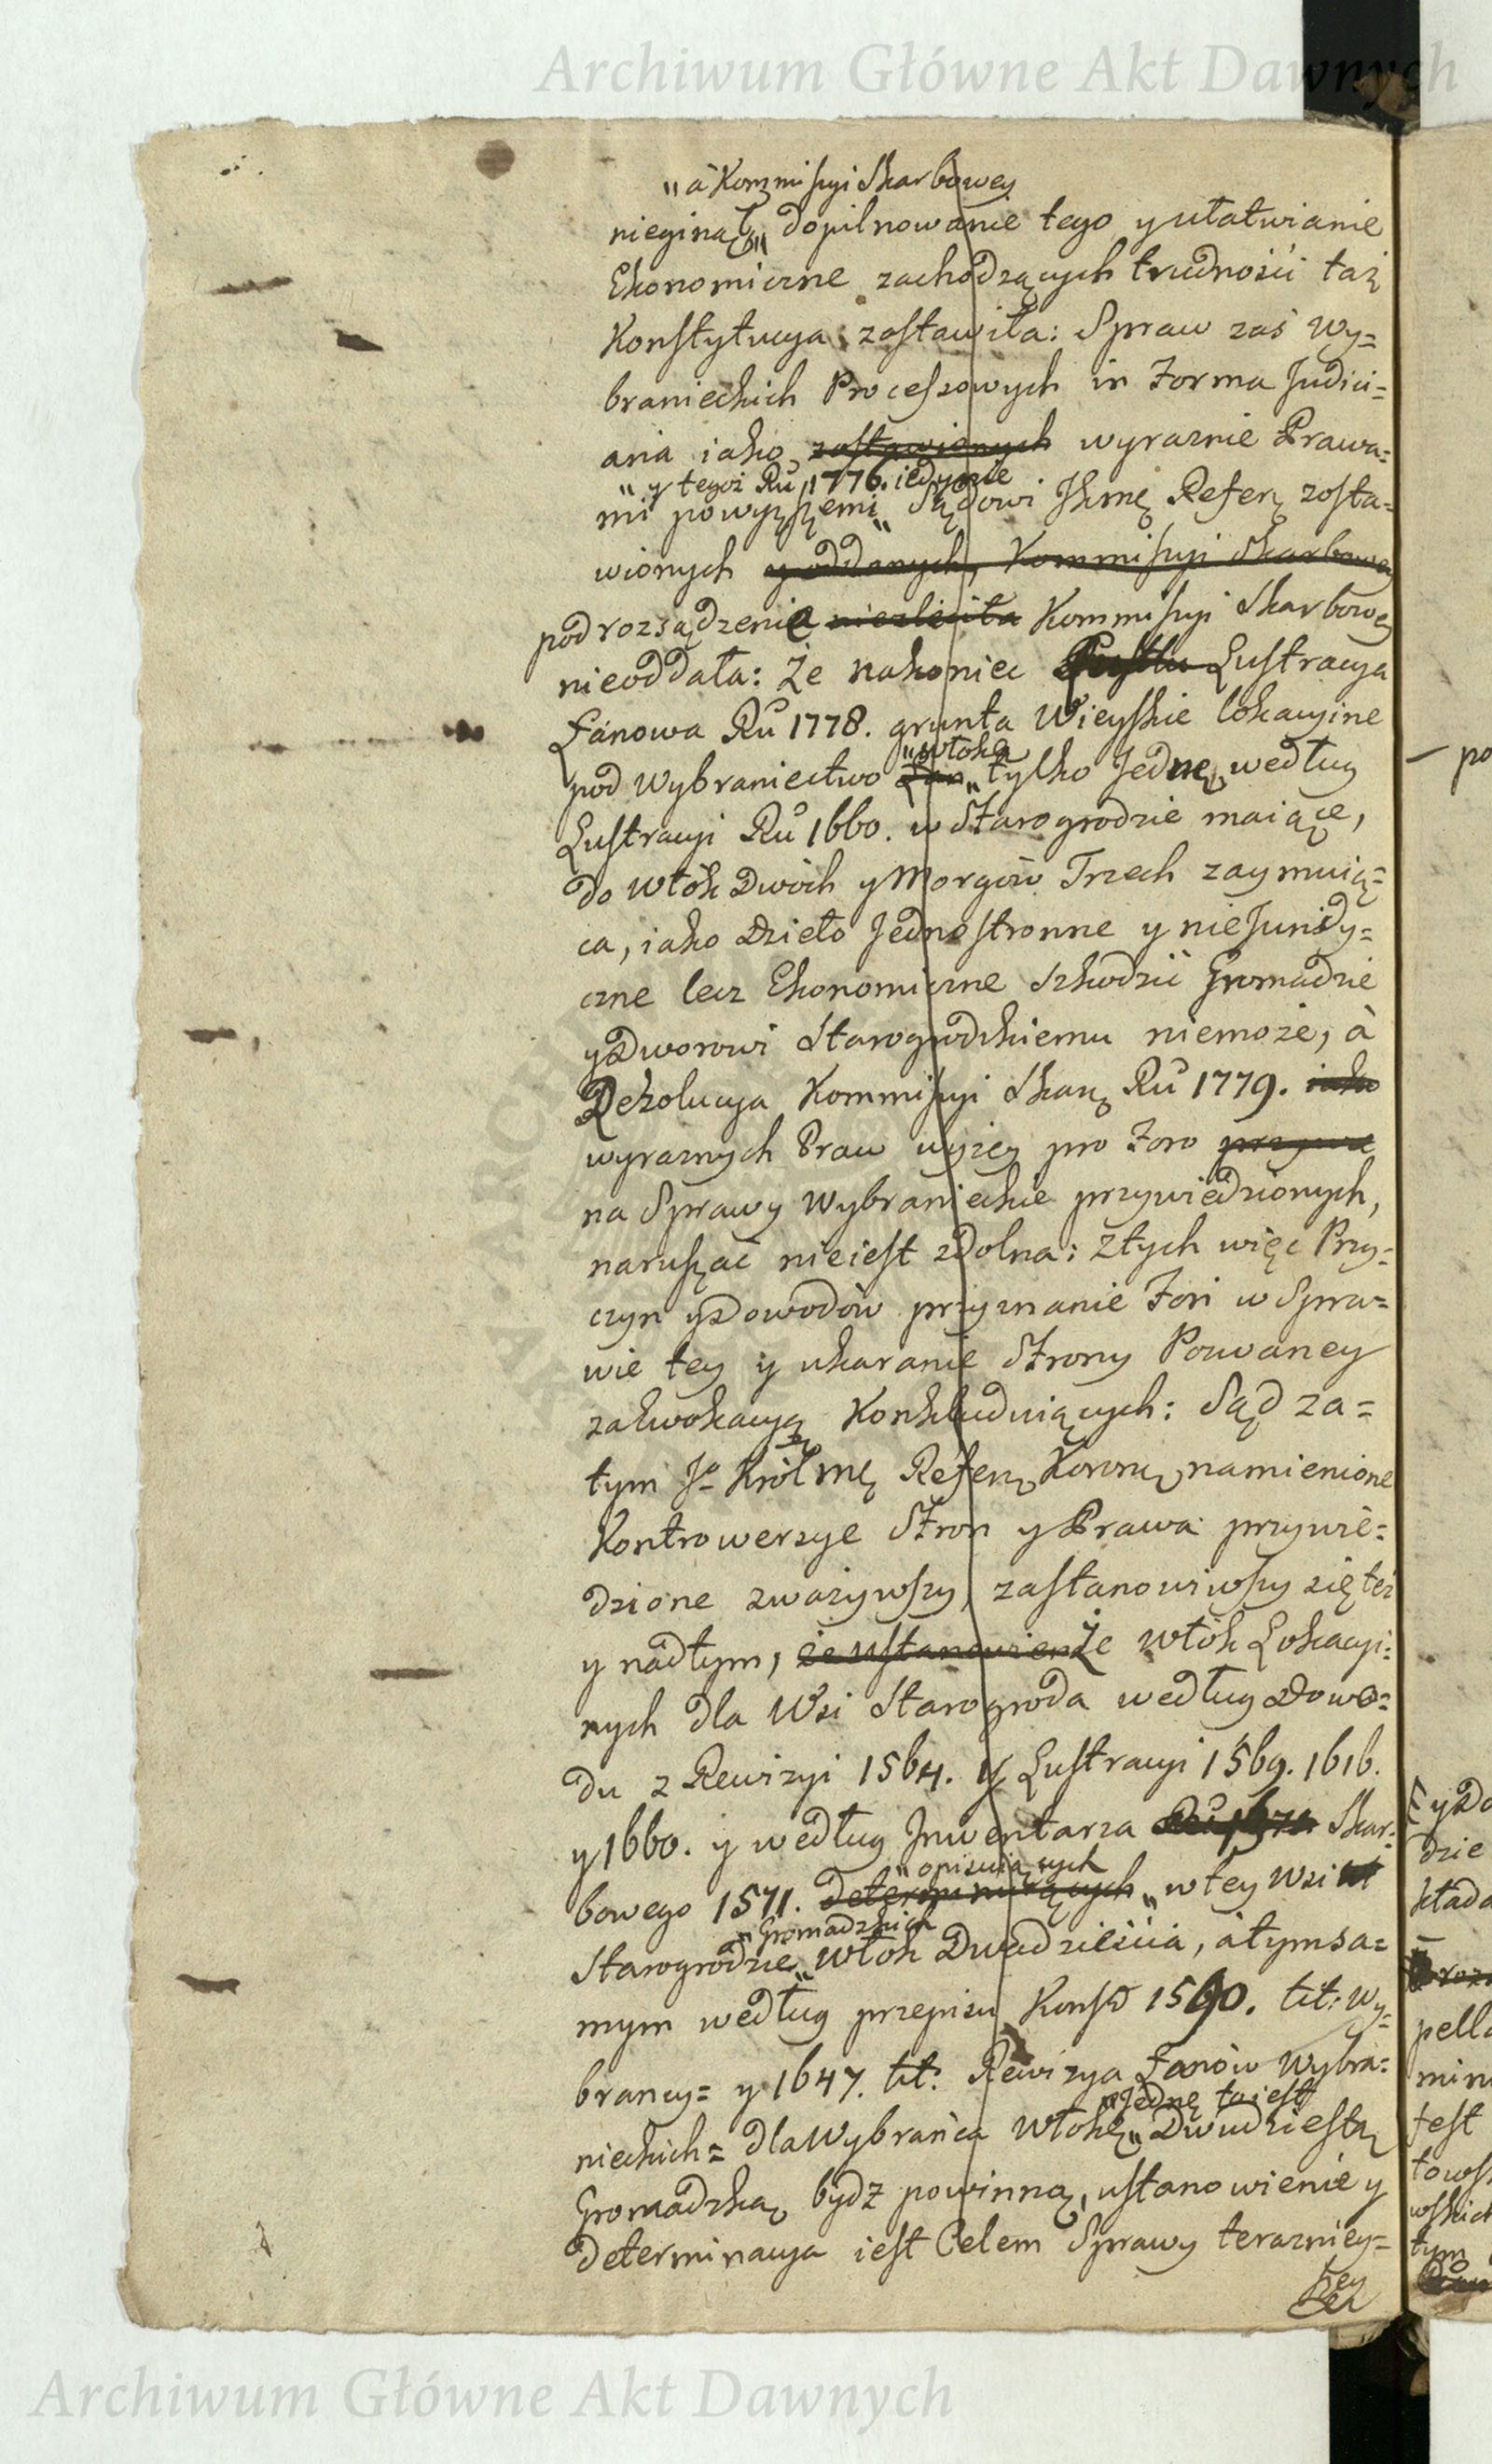 Archiwum Główne Akt Dawnych
„ à Kommissyi Skarbowey
nieginął„ dopilnowanie tego y ułatwianie
Ekonomiczne zachodzących trudności taż
Konstytucya zostawiła: Spraw zaś Wy=
branieckich Processowych in Forma Judici=
aria iako zostawionych wyraznie Prawa=
„ y tegoż Ru 1776. iedynie
mi powyższemi„ Sądowi JKmę Referę zosta=
wionych y oddanych, Kommissyi Skarbowey
pod rozsądzenie niezleciła Kommissyi Skarbowey
nieoddała: Że nakoniec Lustracya
Łanowa Ru 1778. grunta Wieyskie lokacyine
„włokę
pod Wybraniectwo Łan„ tylko Jednę, według
Lustracyi Ru 1660. w Starogrodzie maiące,
do włók Dwóch y Morgów Trzech zaymuią=
ca, iako Dzieło Jednostronne y nieJuridy=
czne lecz Ekonomiczne szkodzić Gromadzie
y Dworowi Starogrodzkiemu niemoże, à
Rezolucya Kommissyi Skarę Ru 1779. iako
wyraznych Praw wyżey pro Foro przywe
na Sprawy Wybranieckie przywiedzionych,
naruszać nieiest zdolna: Ztych więc Przy=
czyn y Dowodów przyznanie Fori w Spra=
wie tey y ukaranie Strony Pozwaney
za Ewokacyą Konkluduiących: Sąd za=
tym Jo Król mę Referę Koronę namienione
Kontrowersye Stron y Prawa przywie=
dzione zważywszy, zastanowiwszy się też
y nadtym, że ustanowien Że włók Lokacyi=
nych dla Wsi Starogroda według Dowo=
du z Rewizyi 1564. y Lustracyi 1569. 1616.
y 1660. y według Inwentarza Skar=
„opisuiących
bowego 1571. determinuiących„ w tey Wsi
„Gromadzkich
Starogrodzie„ włok Dwadzieścia, a tymsa=
mym według przepisu Konst 1590. tit: Wy=
brancy= y 1647. tit: Rewizya Łanów Wybra=
„Jednę to iest
nieckich= dla Wybrańca włokę„ Dwudziestą
Gromadzką bydz powinną, ustanowienie y
determinacya iest Celem Sprawy terazniey=
szey
po
y Do
dzie
kłada
pella
min
fest
tows
wskich
tym
Archiwum Główne Akt Dawnych